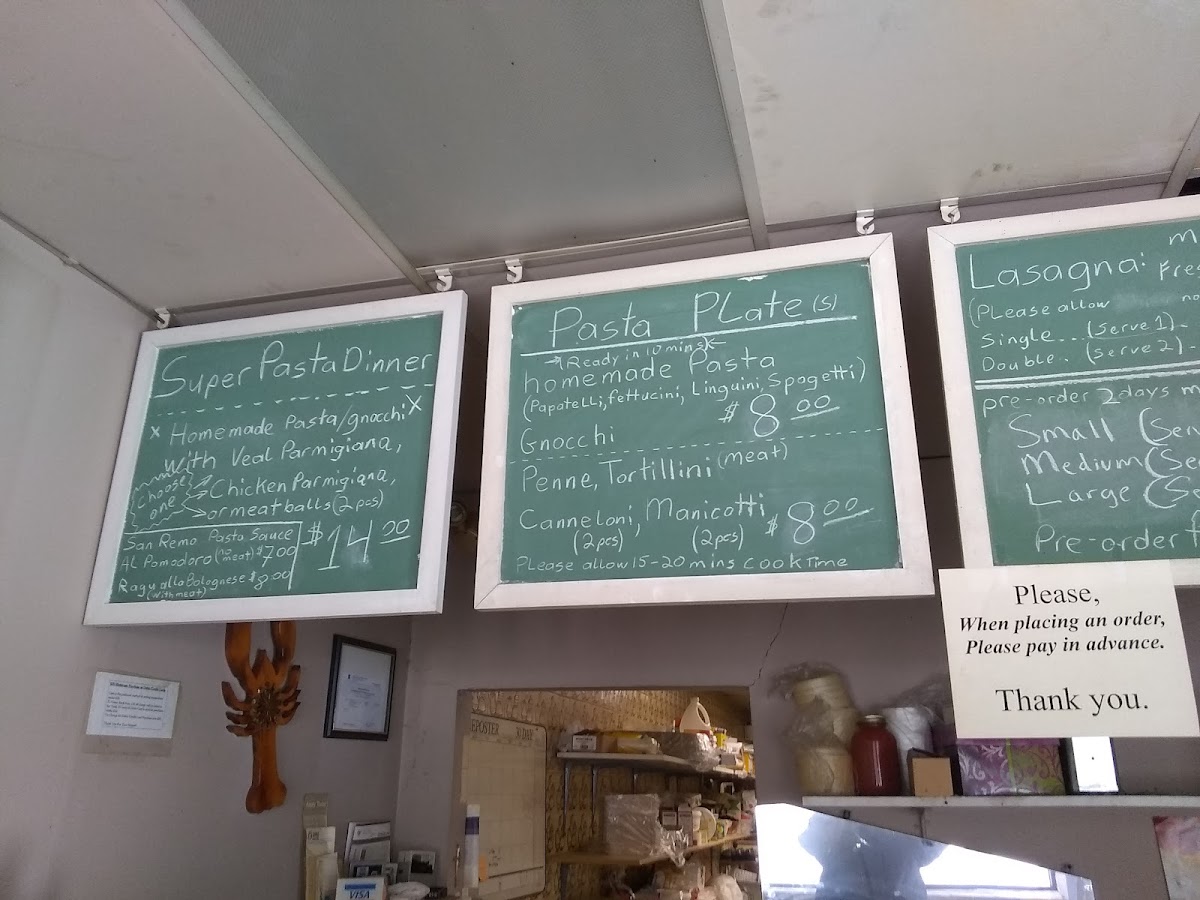 Super Pasta Dinner
x Homemade Pasta/gnocchi x
with Veal Parmigiana,
choose one
Chicken Parmigiana,
or meatballs (2 pcs)
$14.00
San Remo Pasta Sauce
AL Pomodoro (no meat) $7.00
Ragu alla Bolognese $8.00
(with meat)
Pasta PLate(s)
Ready in 10 mins
homemade Pasta
(Papatelli, fettucini, Linguini, Spagetti)
Gnocchi $8.00
Penne, Tortillini (meat)
Canneloni, Manicotti $8.00
(2pcs) (2pcs)
PLease allow 15-20 mins cook Time
Lasagna: Fre
(PLease allow
Single...(serve 1)-
Double..(serve 2)-
pre-order 2 days
Small (Ser
Medium (Se
Large (S
Pre-order
Please,
When placing an order,
Please pay in advance.
Thank you.
30 DAY
VISA